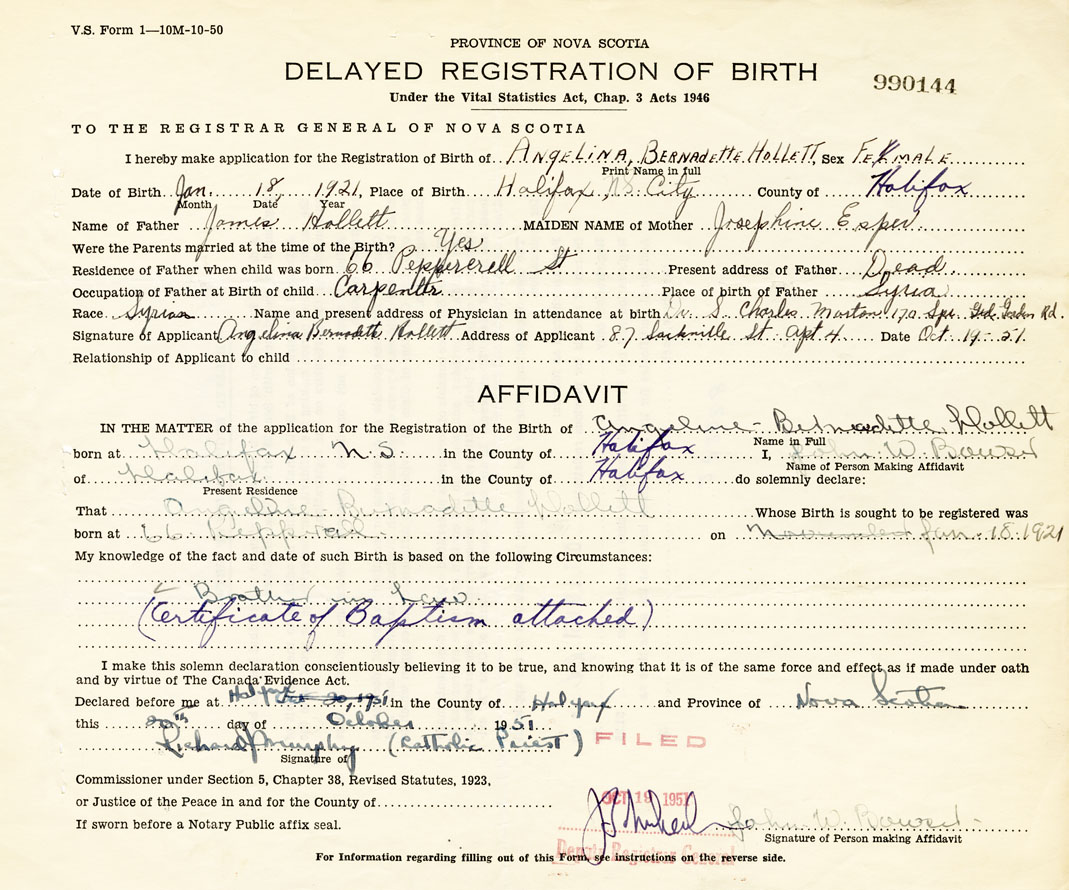 V.S. Form 1—10M-10-50
PROVINCE OF NOVA SCOTIA
DELAYED REGISTRATION OF BIRTH
990144
Under the Vital Statistics Act, Chap. 3 Acts 1946
TO THE REGISTRAR GENERAL OF NOVA SCOTIA
I hereby make application for the Registration of Birth of ANGELINA, BERNADETTE HOLLETT, Sex FEMALE
Print Name in full
Date of Birth Jan. 18, 1921, Place of Birth Halifax, N.S. City County of Halifax
Month Date Year
Name of Father James Hollett MAIDEN NAME of Mother Josephine Esper
Were the Parents married at the time of the Birth? Yes
Residence of Father when child was born 66 Peppercrell St Present address of Father Dead
Occupation of Father at Birth of child Carpenter Place of birth of Father Syria
Race Syrian Name and present address of Physician in attendance at birth Dr. S. Charles Morton 170 Rd.
Signature of Applicant Angelina Bernadette Hollett Address of Applicant 87 Sackville St Apt 4 Date Oct 19-51
Relationship of Applicant to child
AFFIDAVIT
IN THE MATTER of the application for the Registration of the Birth of Angeline Bernadette Hollett
Name in Full
born at Halifax N.S. in the County of Halifax I, John W. Bowser
Name of Person Making Affidavit
of Halifax in the County of Halifax do solemnly declare:
Present Residence
That Angeline Bernadette Hollett Whose Birth is sought to be registered was
born at 66 Pepperell on November Jan. 18. 1921
My knowledge of the fact and date of such Birth is based on the following Circumstances:
Brother in Law
(Certificate of Baptism attached)
I make this solemn declaration conscientiously believing it to be true, and knowing that it is of the same force and effect as if made under oath
and by virtue of The Canada Evidence Act.
Declared before me at Halifax Oct 20, 1951 in the County of Halifax and Province of Nova Scotia
this 20th day of October 1951
Richard Murphy (Catholic Priest) FILED
Signature of
Commissioner under Section 5, Chapter 38, Revised Statutes, 1923,
or Justice of the Peace in and for the County of
OCT 19 1951
John W. Bowser
If sworn before a Notary Public affix seal.
Signature of Person making Affidavit
Deputy Registrar General
For Information regarding filling out of this Form, see instructions on the reverse side.